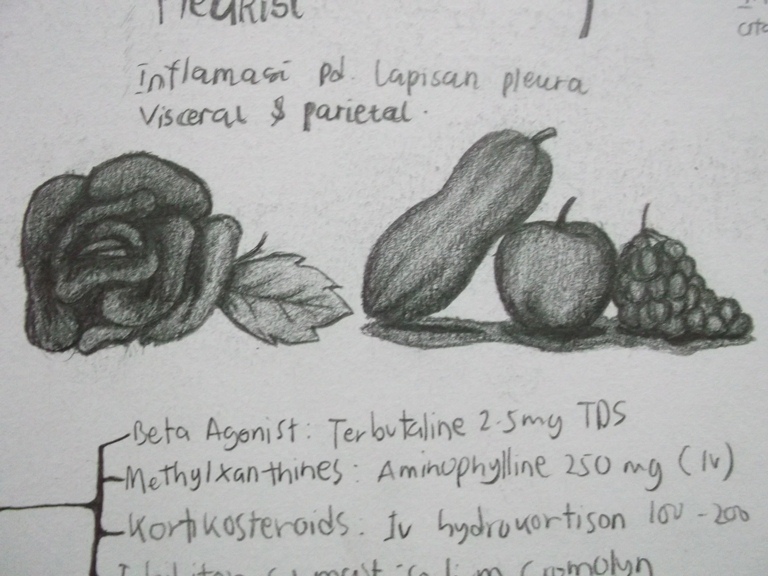 Pleurisi
Inflamasi pd. lapisan pleura
Visceral & parietal.
Beta Agonist: Terbutaline 2.5mg TDS
Methylxanthines: Aminophylline 250 mg (IV)
Kortikosteroids: IV hydrokortison 100 - 200